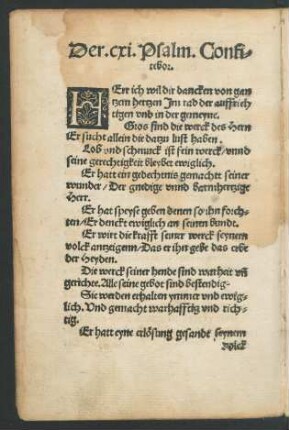 Der. cxi. Psalm. Confi-
tebor.
HErr ich wil dir dancken von gan
tzem hertzen Im rad der auffrich
tigen vnd in der gemeyne.
Gros sind die werck des Hern
Er sucht allein die datzu lust haben.
Lob vnd schmuck ist sein werck/ vnnd
seine gerechtigkeit bleybet ewiglich.
Er hatt ein gedechtnis gemacht seiner
wunder/ Der gnedige vnnd barmhertzige
Herr.
Er hat speyse geben denen so ihn forch-
ten/ Er denckt ewiglich an seinen bundt.
Er wirt die krafft seiner werck seynem
volck antzeigenn/ Das er ihn gebe das erbe
der Heyden.
Die werck seiner hende sind warheit vñ
gerichte. Alle seine gebot sind bestendig-
Sie werden erhalten ymmer vnd ewig-
lich. Vnd gemacht warhafftig vnd rich-
tig.
Er hatt eyne erlösung gesandt seynem
volck